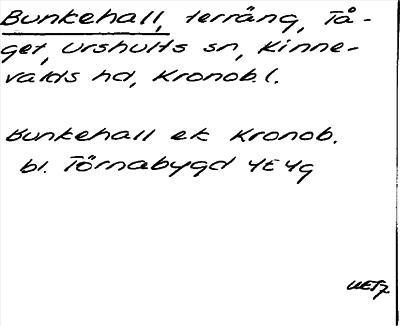 Bunkehall, terräng, Tå-
get, Urshults sn, Kinne-
valds hd, Kronob. l.
Bunkehall ek Kronob.
bl. Törnabygd 4E4g